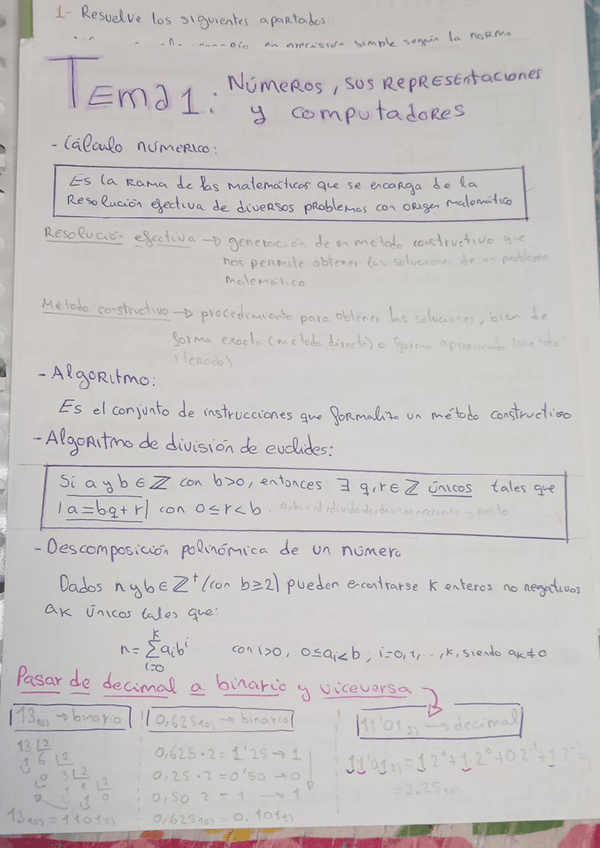 1- Resuelve los siguientes apartados:
en precisión simple según la norma
Tema 1: Números, sus representaciones
y computadores
- Cálculo numérico:
Es la rama de las matemáticas que se encarga de la
resolución efectiva de diversos problemas con origen matemático
Resolución efectiva → generación de un método constructivo que
nos permite obtener las soluciones de un problema
matemático
Método constructivo → procedimiento para obtener las soluciones, bien de
forma exacta (método directo) o forma aproximada (método
iterado)
- Algoritmo:
Es el conjunto de instrucciones que formaliza un método constructivo
- Algoritmo de división de euclides:
Si a y b ∈ Z con b>0, entonces ∃ q,r ∈ Z únicos tales que
|a=bq+r| con 0≤r<b. a,b,c,d dividendo, divisor, cociente y resto
- Descomposición polinómica de un número
Dados n y b ∈ Z⁺ (con b≥2) pueden encontrarse K enteros no negativos
aK únicos tales que:
n = Σ aᵢbⁱ con i>0, 0≤aᵢ<b, i=0,1,..,K, siendo aₖ≠0
K
i=0
Pasar de decimal a binario y viceversa
13₁₀) → binario 0,625₁₀) → binario 11'01₂) → decimal
13 |2 0,625·2=1'25→1 11'01₂)=1·2¹+1·2⁰+0·2⁻¹+1·2⁻²=
1 6 |2 0,25·2=0'50→0 =3,25₁₀)
0 3 |2 0,50·2=1→1
1 1 |2
1 0
13₁₀)=1101₂) 0,625₁₀)=0.101₂)